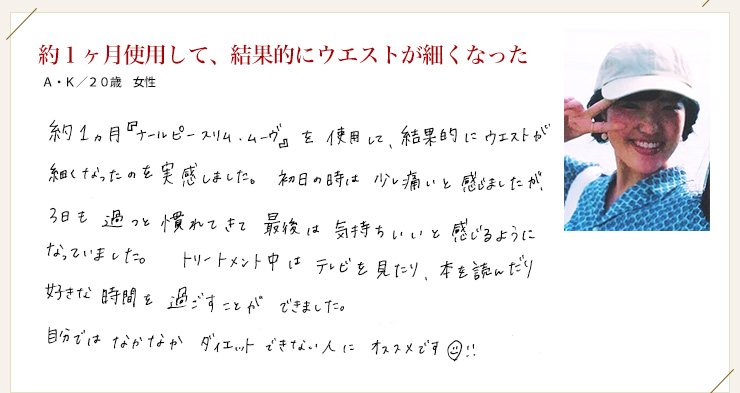 約１ヶ月使用して、結果的にウエストが細くなった
Ａ・Ｋ／２０歳　女性
約1ヵ月『ナールピースリム・ムーヴ』を使用して、結果的にウエストが
細くなったのを実感しました。初日の時は少し痛いと感じましたが、
3日も過つと慣れてきて最後は気持ちいいと感じるように
なっていました。トリートメント中はテレビを見たり、本を読んだり
好きな時間を過ごすことができました。
自分ではなかなかダイエットできない人にオススメです☺!!